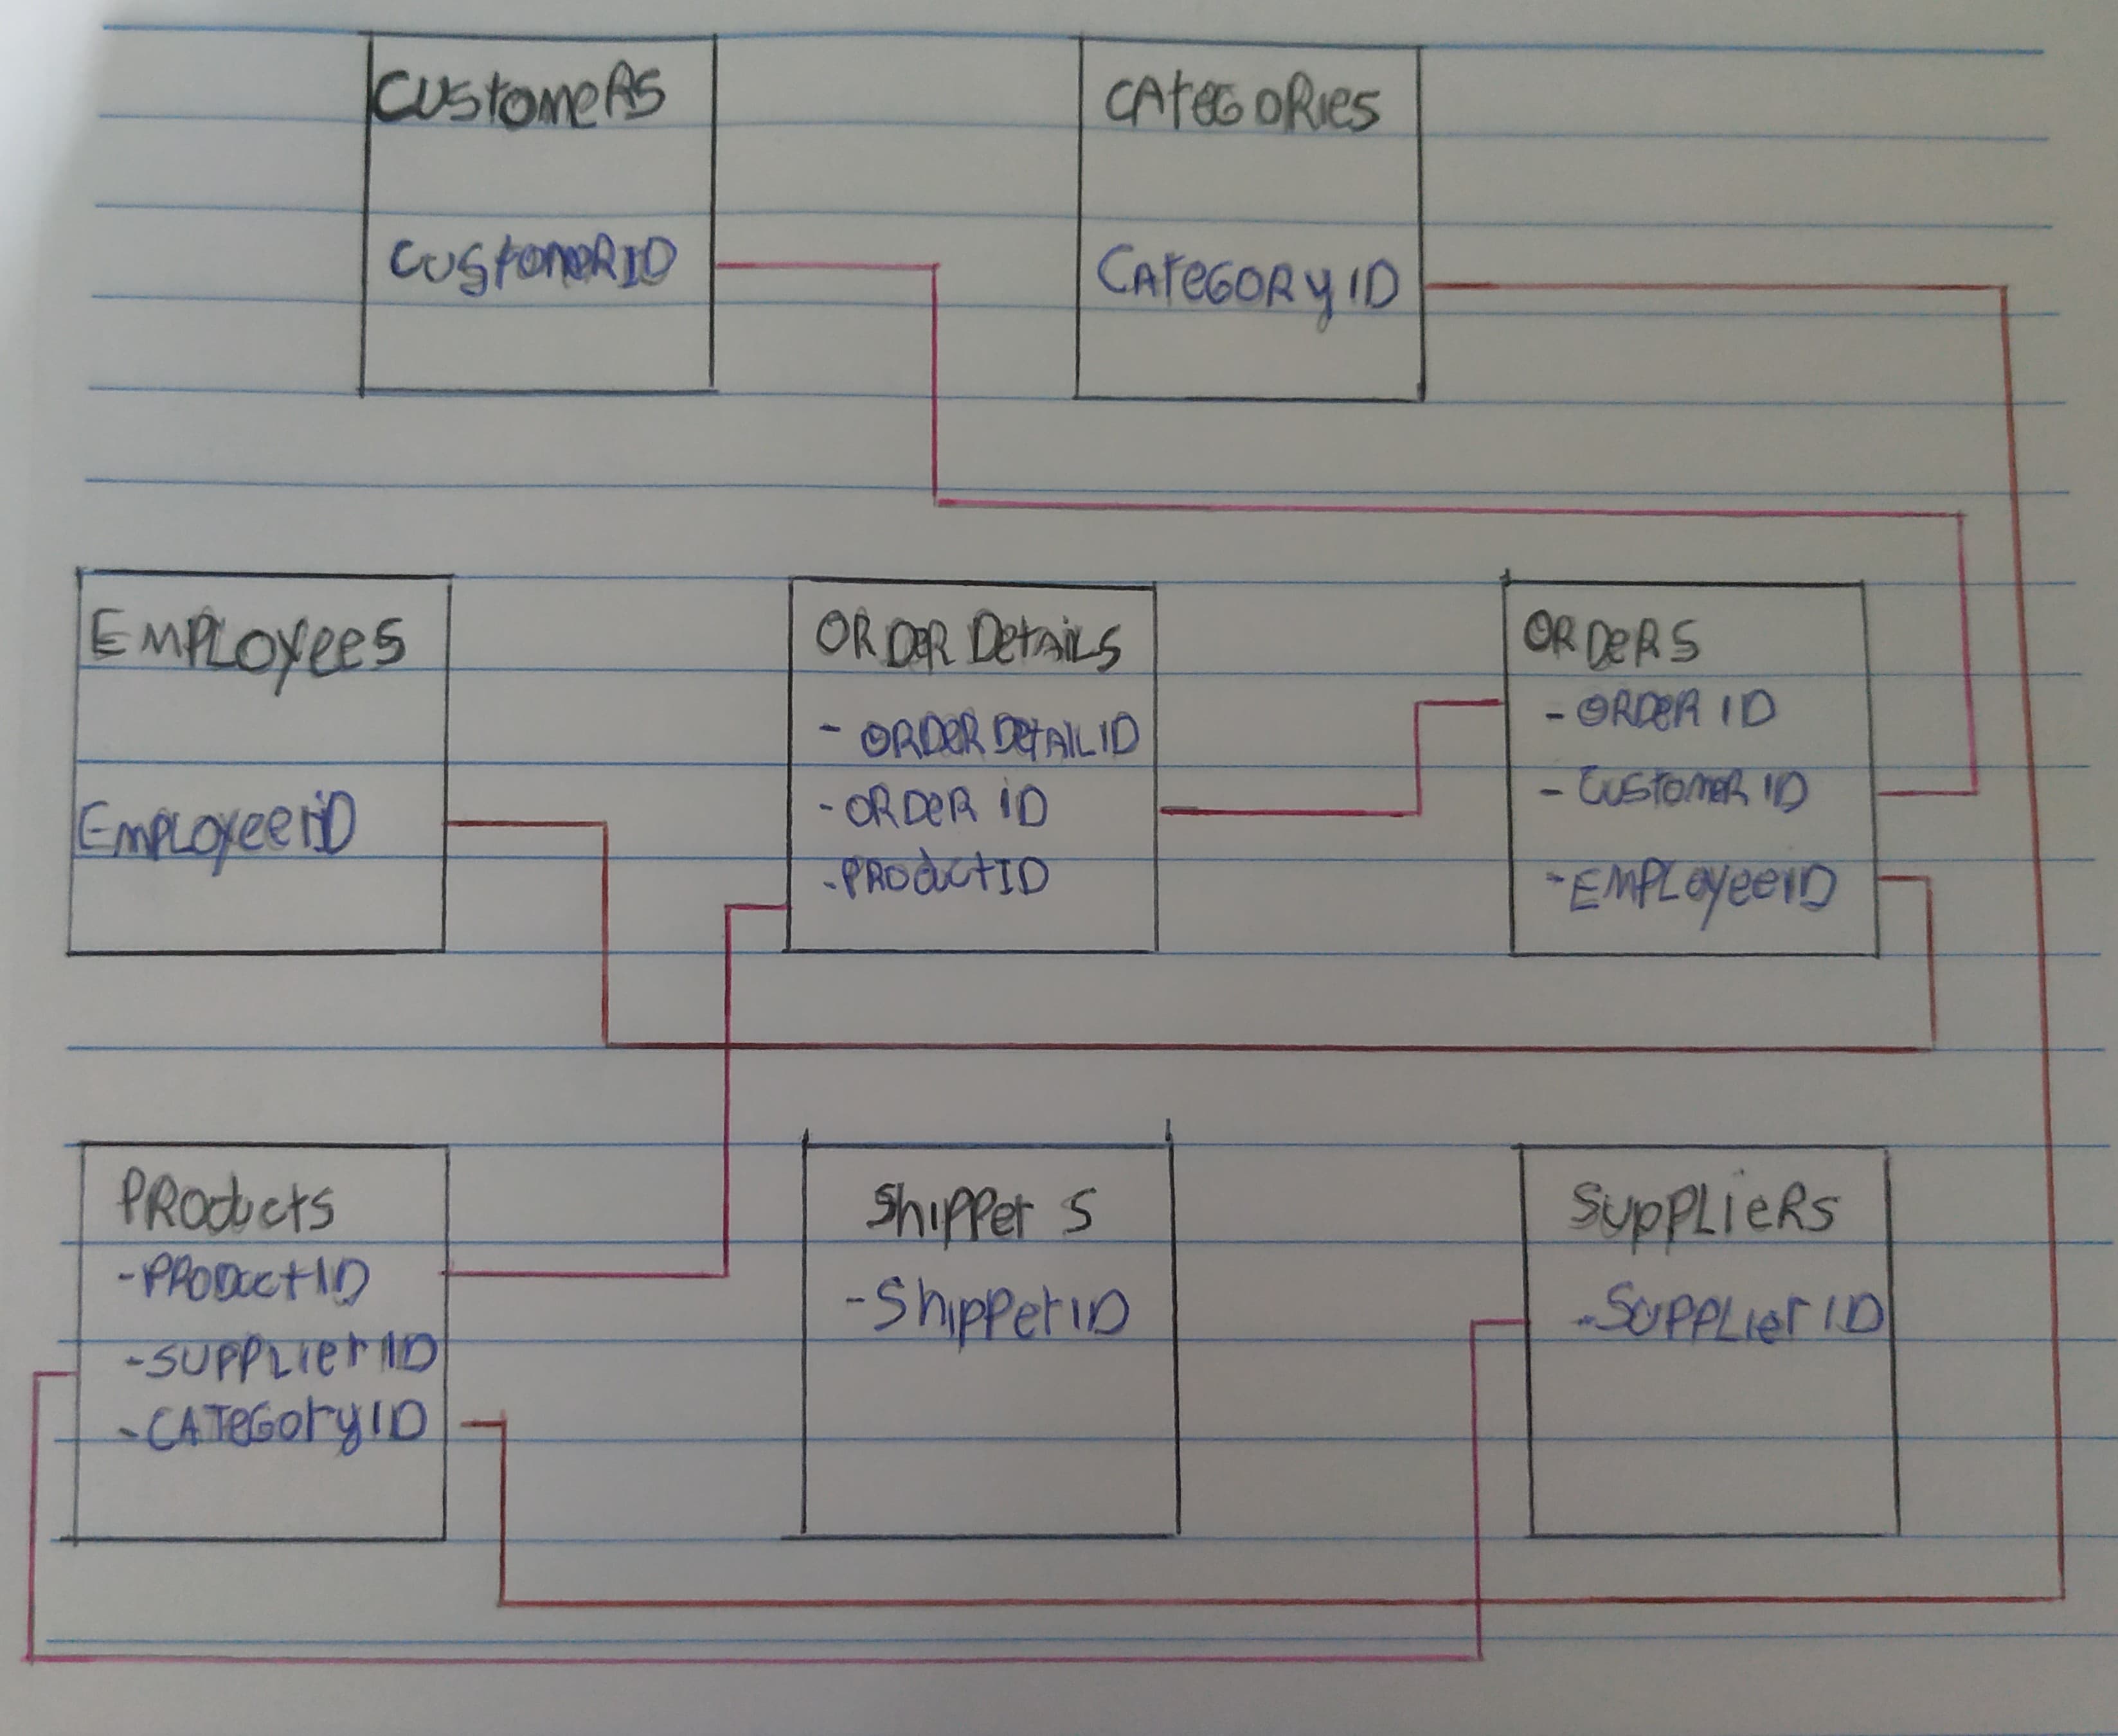 CUSTOMERS
CUSTOMERID
CATEGORIES
CATEGORY ID
EMPLOYEES
EMPLOYEEID
ORDER DETAILS
- ORDER DETAIL ID
- ORDER ID
- PRODUCTID
ORDERS
- ORDER ID
- CUSTOMER ID
- EMPLOYEEID
PRODUCTS
- PRODUCTID
- SUPPLIER ID
- CATEGORYID
Shippers
- ShipperID
SUPPLIERS
- SUPPLIER ID